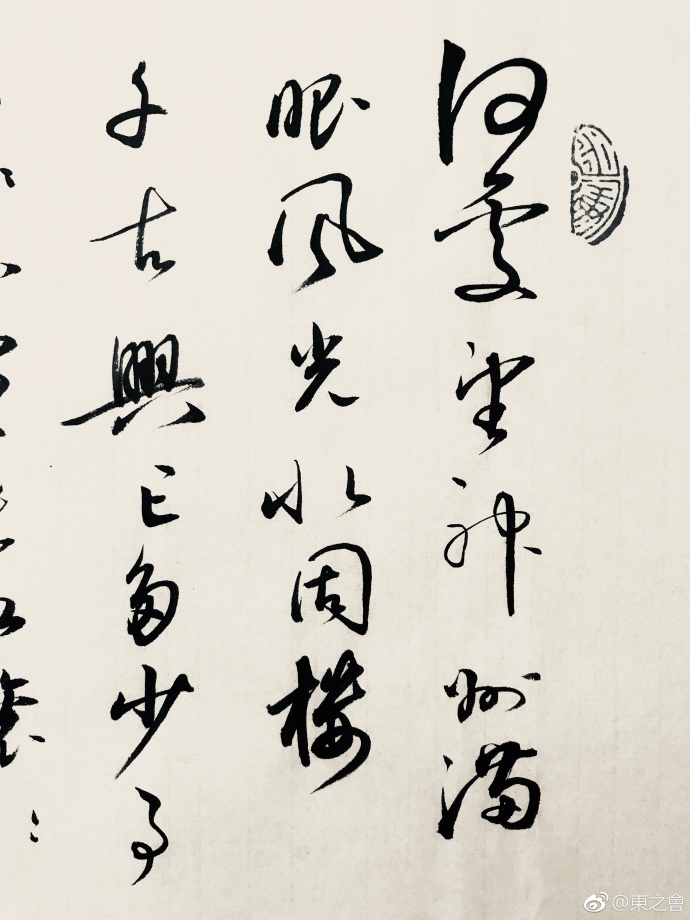 何處望神州滿
眼風光北固樓
千古興亡多少事
@東之會